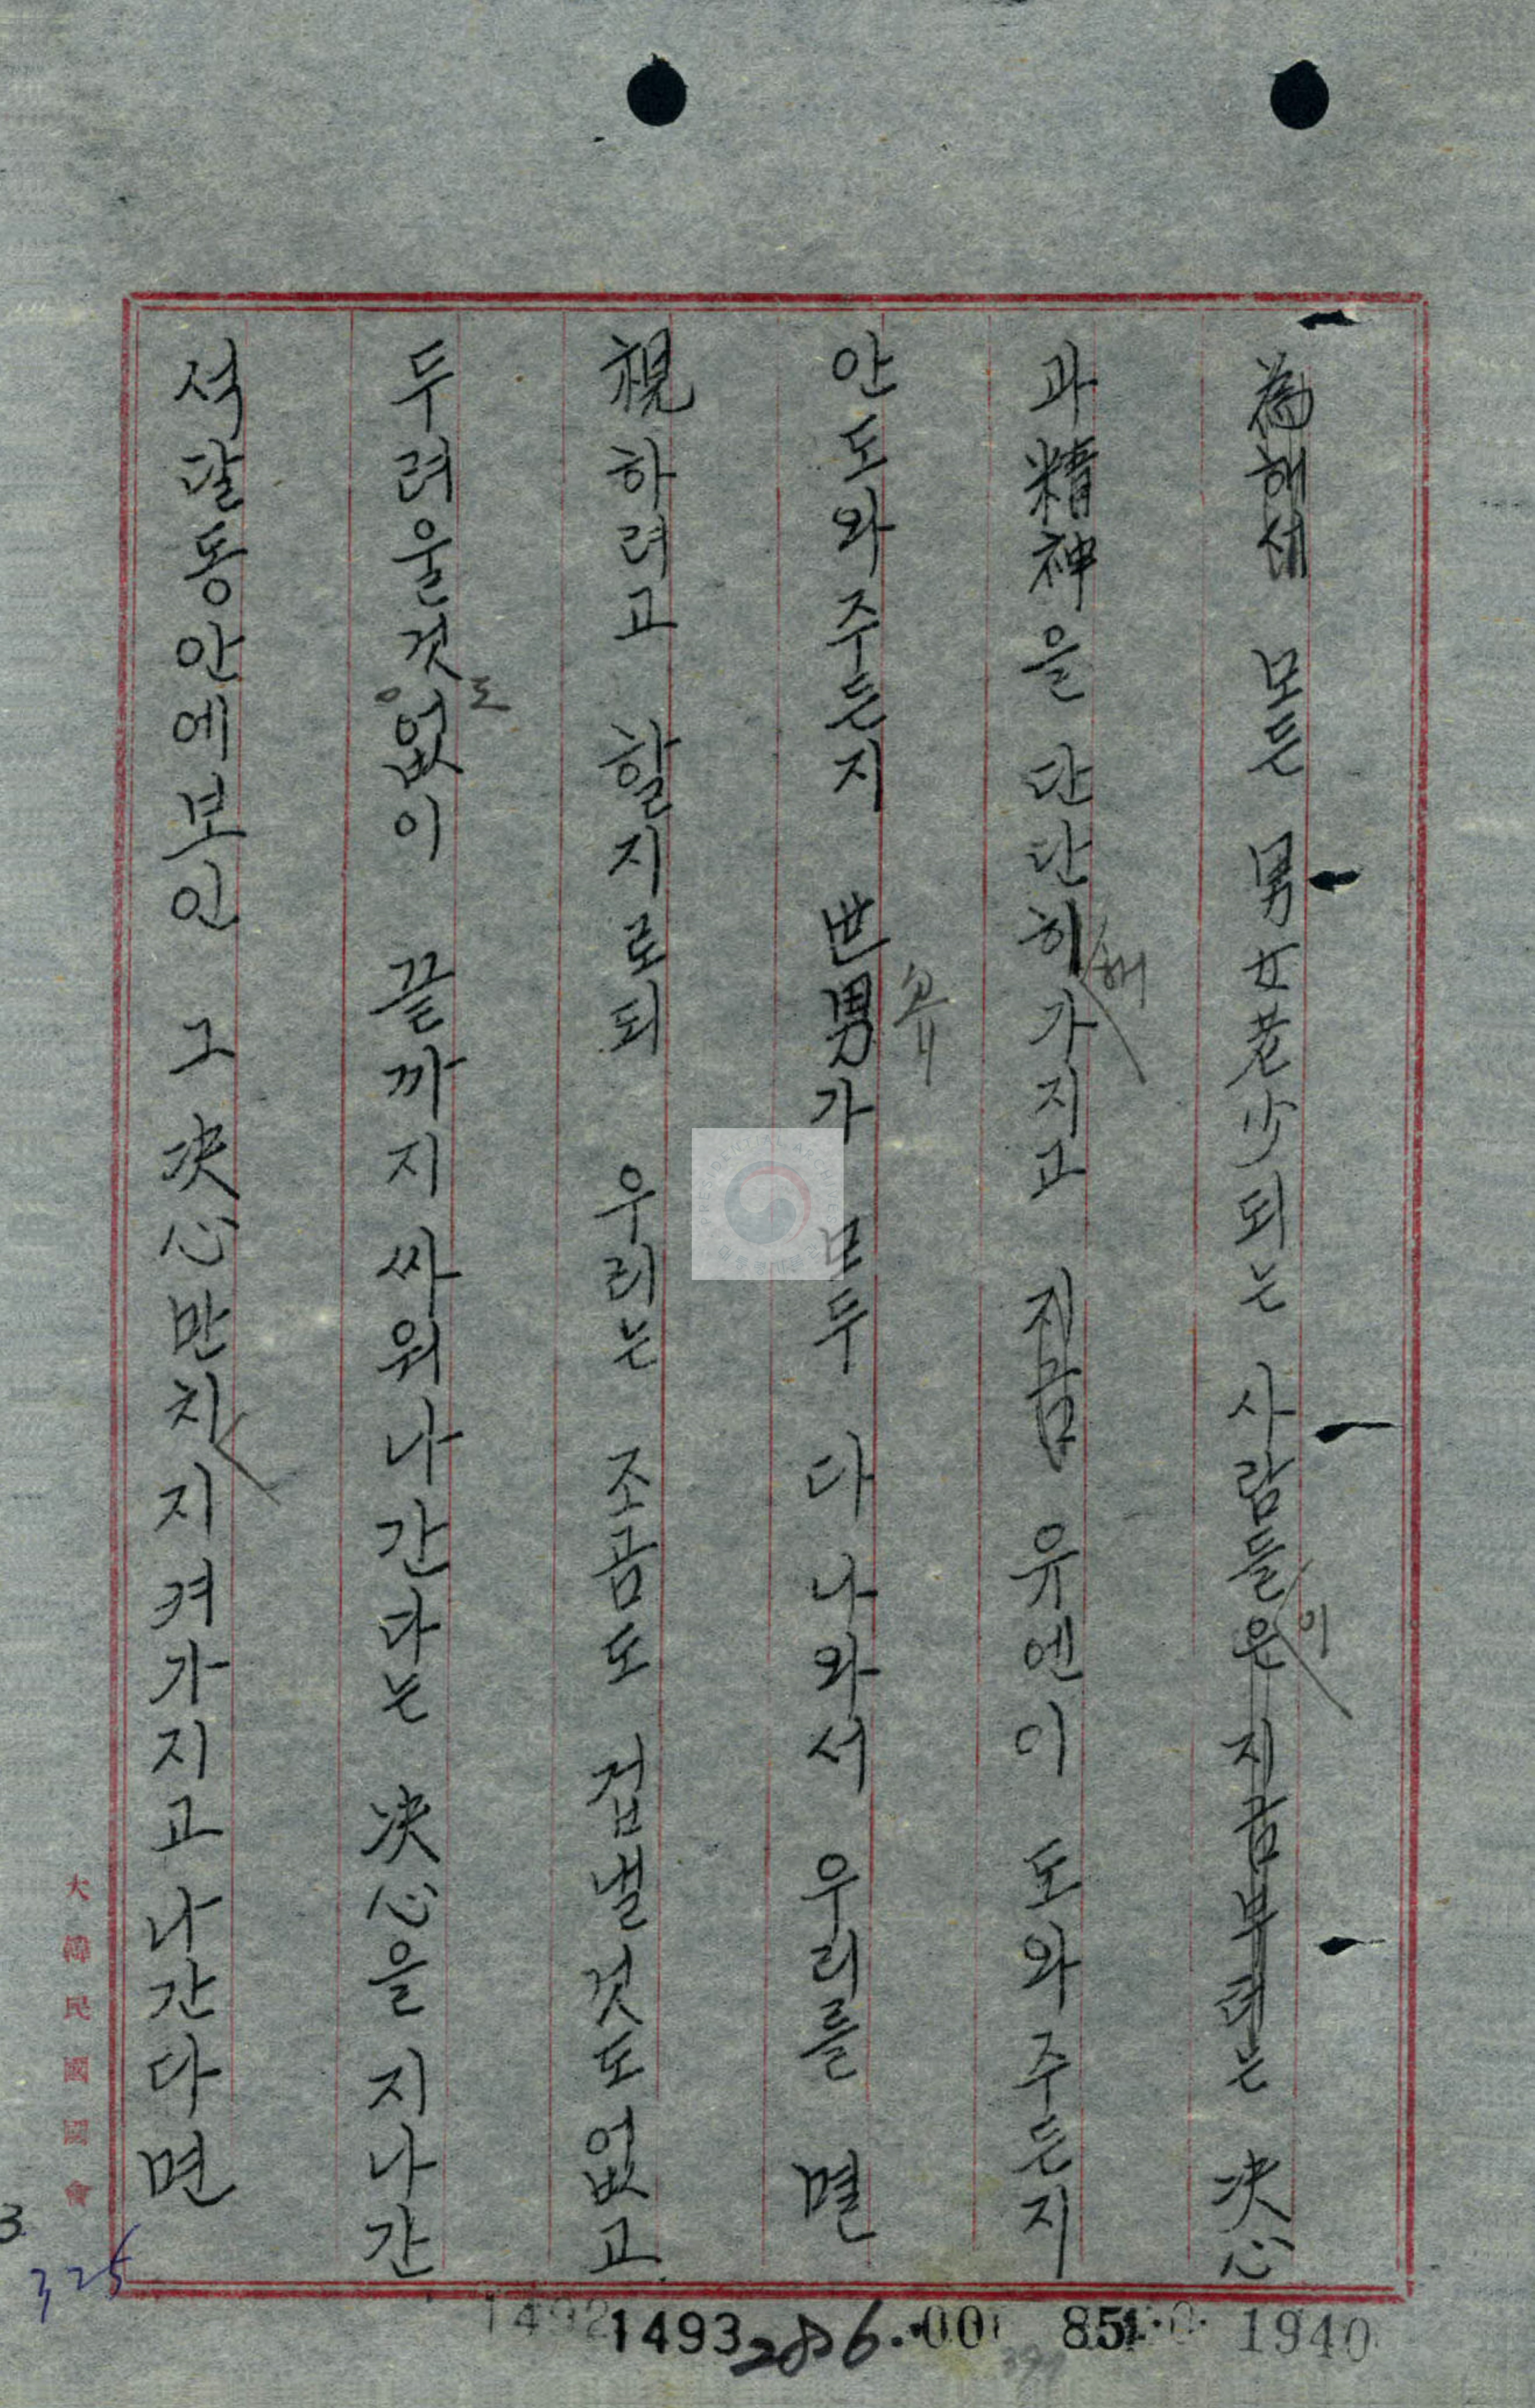 為해서 모든 男女老少되는 사람들은 지금부터는 决心
이
과精神을 단단히가지고 지금 유엔이 도와주든지
해
안도와주든지 世男가 모두 다 나와서 우리를 멸
視하려고 할지로되 우리는 조곰도 겁낼것도없고
두려울것없이 끝까지싸워나간다는 决心을 지나간
도
석달동안에보인 그 决心만치 지켜가지고 나간다면
大韓民國國會
3
325
1492
1493
286
001
851
1940